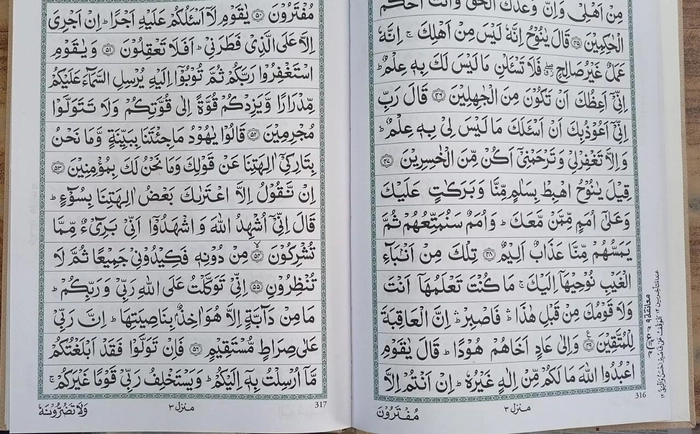 مِنْ اَهْلِیْ وَاِنَّ وَعْدَكَ الْحَقُّ وَاَنْتَ اَحْكَمُ
الْحٰكِمِیْنَ ۝۴۵ قَالَ یٰنُوْحُ اِنَّهٗ لَیْسَ مِنْ اَهْلِكَ ۚ اِنَّهٗ
عَمَلٌ غَیْرُ صَالِحٍ ۖ فَلَا تَسْـَٔلْنِ مَا لَیْسَ لَكَ بِهٖ عِلْمٌ ؕ
اِنِّیْۤ اَعِظُكَ اَنْ تَكُوْنَ مِنَ الْجٰهِلِیْنَ ۝۴۶ قَالَ رَبِّ
اِنِّیْۤ اَعُوْذُ بِكَ اَنْ اَسْـَٔلَكَ مَا لَیْسَ لِیْ بِهٖ عِلْمٌ ؕ
وَاِلَّا تَغْفِرْ لِیْ وَتَرْحَمْنِیْۤ اَكُنْ مِّنَ الْخٰسِرِیْنَ ۝۴۷
قِیْلَ یٰنُوْحُ اهْبِطْ بِسَلٰمٍ مِّنَّا وَبَرَكٰتٍ عَلَیْكَ
وَعَلٰۤی اُمَمٍ مِّمَّنْ مَّعَكَ ؕ وَاُمَمٌ سَنُمَتِّعُهُمْ ثُمَّ
یَمَسُّهُمْ مِّنَّا عَذَابٌ اَلِیْمٌ ۝۴۸ تِلْكَ مِنْ اَنْۢبَآءِ
الْغَیْبِ نُوْحِیْهَاۤ اِلَیْكَ ۚ مَا كُنْتَ تَعْلَمُهَاۤ اَنْتَ
وَلَا قَوْمُكَ مِنْ قَبْلِ هٰذَا ۛؕ فَاصْبِرْ ۛؕ اِنَّ الْعَاقِبَةَ
لِلْمُتَّقِیْنَ ۝۴۹ وَاِلٰی عَادٍ اَخَاهُمْ هُوْدًا ؕ قَالَ یٰقَوْمِ
اعْبُدُوا اللّٰهَ مَا لَكُمْ مِّنْ اِلٰهٍ غَیْرُهٗ ؕ اِنْ اَنْتُمْ اِلَّا
مُفْتَرُوْنَ
منزل ۳
316
مُفْتَرُوْنَ ۝۵۰ یٰقَوْمِ لَاۤ اَسْـَٔلُكُمْ عَلَیْهِ اَجْرًا ؕ اِنْ اَجْرِیَ
اِلَّا عَلَی الَّذِیْ فَطَرَنِیْ ؕ اَفَلَا تَعْقِلُوْنَ ۝۵۱ وَیٰقَوْمِ
اسْتَغْفِرُوْا رَبَّكُمْ ثُمَّ تُوْبُوْۤا اِلَیْهِ یُرْسِلِ السَّمَآءَ عَلَیْكُمْ
مِّدْرَارًا وَّیَزِدْكُمْ قُوَّةً اِلٰی قُوَّتِكُمْ وَلَا تَتَوَلَّوْا
مُجْرِمِیْنَ ۝۵۲ قَالُوْا یٰهُوْدُ مَا جِئْتَنَا بِبَیِّنَةٍ وَّمَا نَحْنُ
بِتَارِكِیْۤ اٰلِهَتِنَا عَنْ قَوْلِكَ وَمَا نَحْنُ لَكَ بِمُؤْمِنِیْنَ ۝۵۳
اِنْ نَّقُوْلُ اِلَّا اعْتَرٰىكَ بَعْضُ اٰلِهَتِنَا بِسُوْٓءٍ ؕ
قَالَ اِنِّیْۤ اُشْهِدُ اللّٰهَ وَاشْهَدُوْۤا اَنِّیْ بَرِیْٓءٌ مِّمَّا
تُشْرِكُوْنَ ۝۵۴ مِنْ دُوْنِهٖ فَكِیْدُوْنِیْ جَمِیْعًا ثُمَّ لَا
تُنْظِرُوْنِ ۝۵۵ اِنِّیْ تَوَكَّلْتُ عَلَی اللّٰهِ رَبِّیْ وَرَبِّكُمْ ؕ
مَا مِنْ دَآبَّةٍ اِلَّا هُوَ اٰخِذٌۢ بِنَاصِیَتِهَا ؕ اِنَّ رَبِّیْ
عَلٰی صِرَاطٍ مُّسْتَقِیْمٍ ۝۵۶ فَاِنْ تَوَلَّوْا فَقَدْ اَبْلَغْتُكُمْ
مَّاۤ اُرْسِلْتُ بِهٖۤ اِلَیْكُمْ ؕ وَیَسْتَخْلِفُ رَبِّیْ قَوْمًا غَیْرَكُمْ ۚ
وَلَا تَضُرُّوْنَهٗ
منزل ۳
317